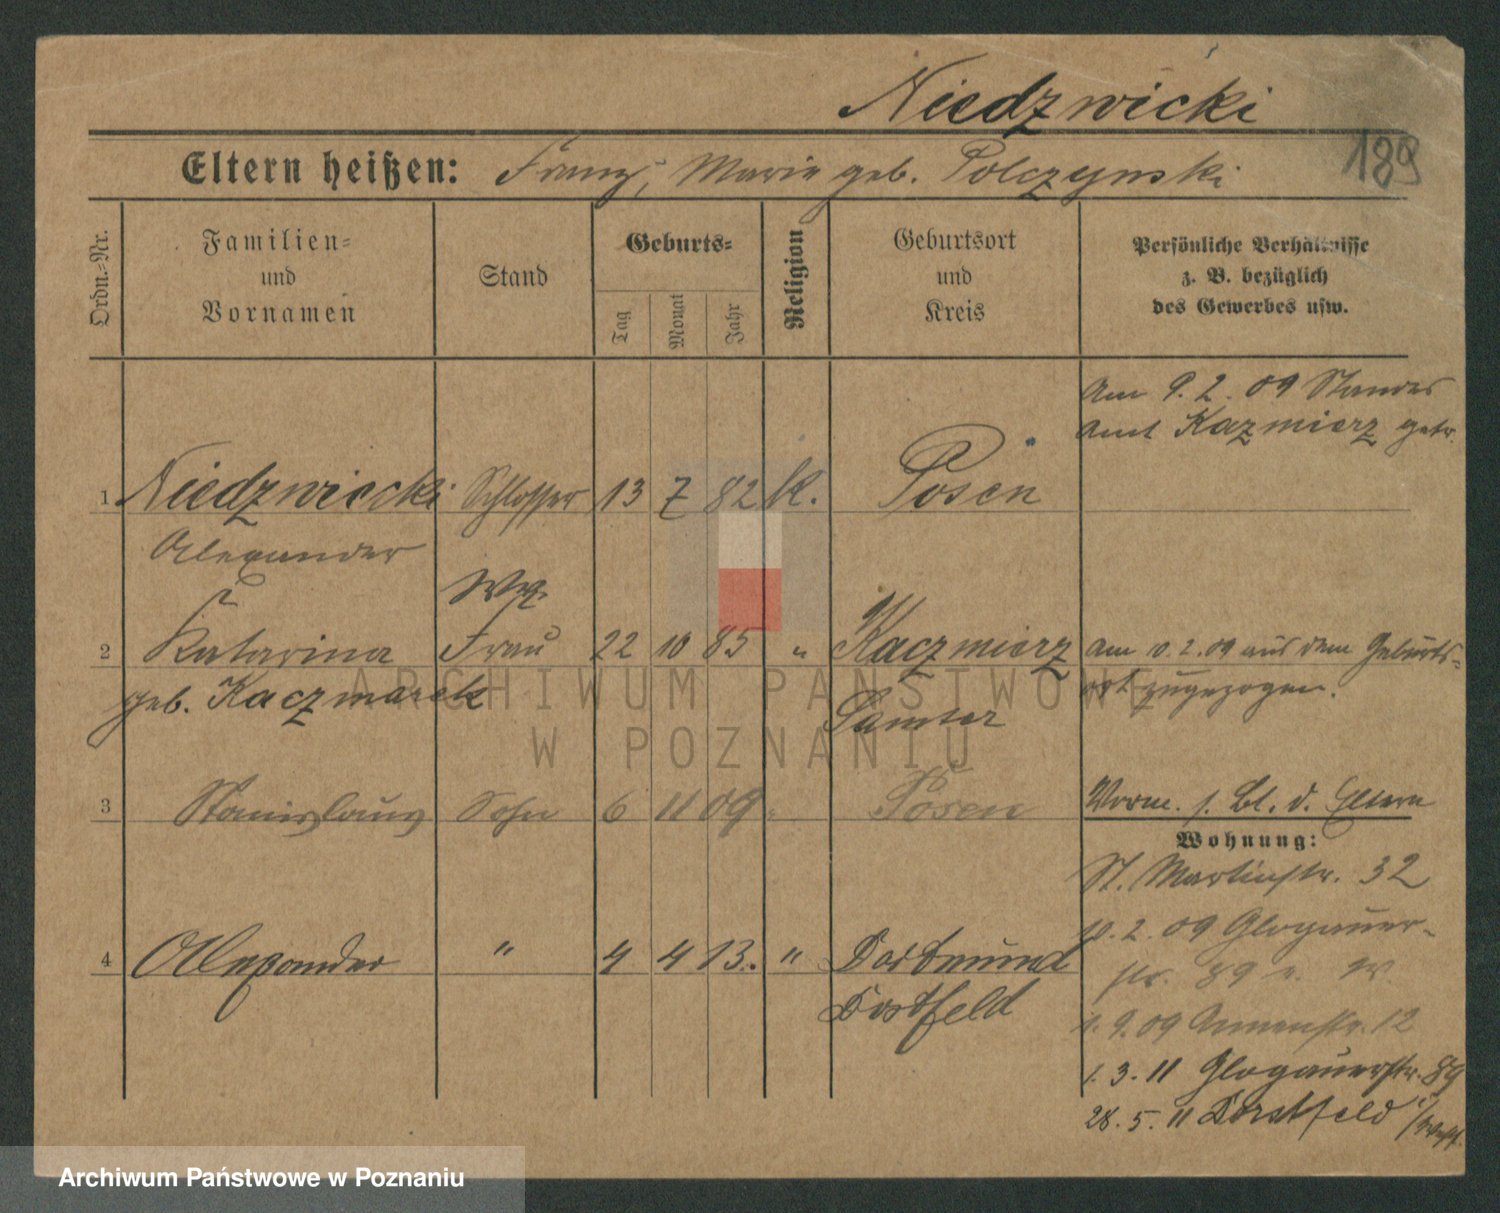 Niedzwicki
189
Eltern heißen: Franz, Marie geb. Polczynski
Ordn.-Nr.
Familien-
und
Vornamen
Stand
Geburts-
Tag
Monat
Jahr
Religion
Geburtsort
und
Kreis
Persönliche Verhältnisse
z. B. bezüglich
des Gewerbes usw.
Am 9. 2. 09 Standes
amt Kazmierz getr.
1 Niedzwiecki Schlosser 13 7 82 K. Posen
Alexander
2 Katarina Frau 22 10 85 " Kaczmierz am 10. 2. 09 aus dem Geburts-
geb. Kaczmarek Samter ort zugezogen.
3 Stanislaus Sohn 6 11 09 " Posen Vorm. s. Bl. d. Eltern
Wohnung:
St. Martinstr. 32
4 Alexander " 4 4 13. " Dortmund
Dorstfeld
10. 2. 09 Glogauer-
str. 89 v. W.
1. 9. 09 Annenstr. 12
1. 3. 11 Glogauerstr. 89
28. 5. 11 Dorstfeld i/Westf.
ARCHIWUM PAŃSTWOWE
W POZNANIU
Archiwum Państwowe w Poznaniu